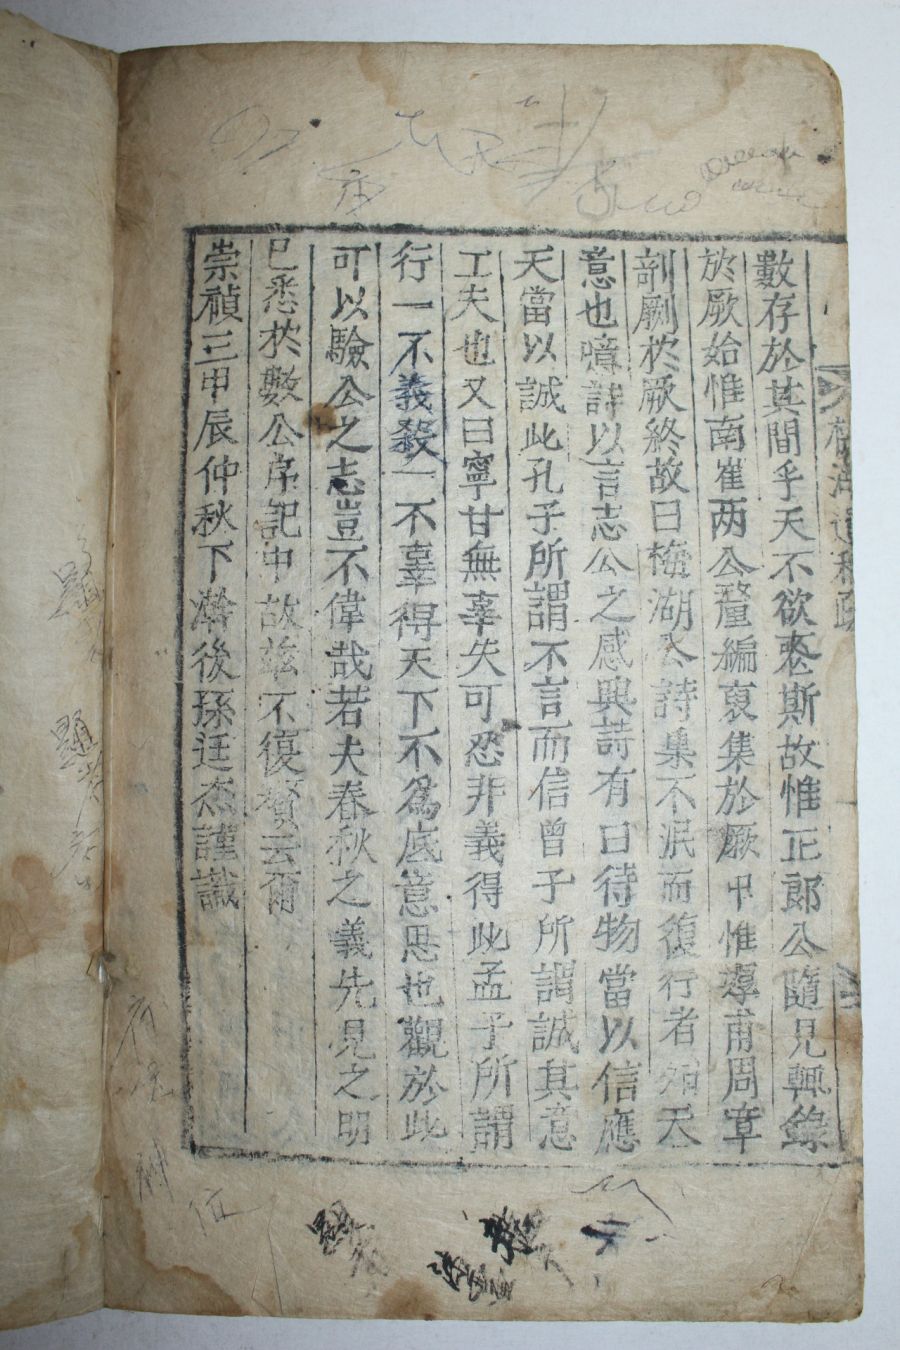 數存於其間乎天不欲喪斯故惟正郎公隨見輒錄
於厥始惟南崔两公釐編裒集於厥中惟導甫周章
剞劂於厥終故曰梅湖公詩集不泯而復行者天
意也噫詩以言志公之感興詩有曰待物當以信應
天當以誠此孔子所謂不言而信曾子所謂誠其意
工夫也又曰寧甘無辜失可恐非義得此孟子所謂
行一不義殺一不辜得天下不爲底意思也觀於此
可以驗公之志豈不偉哉若夫春秋之義先見之明
已悉於數公序記中故玆不復贅云爾
崇禎三甲辰仲秋下澣後孫廷杰謹識
梅湖遺稿